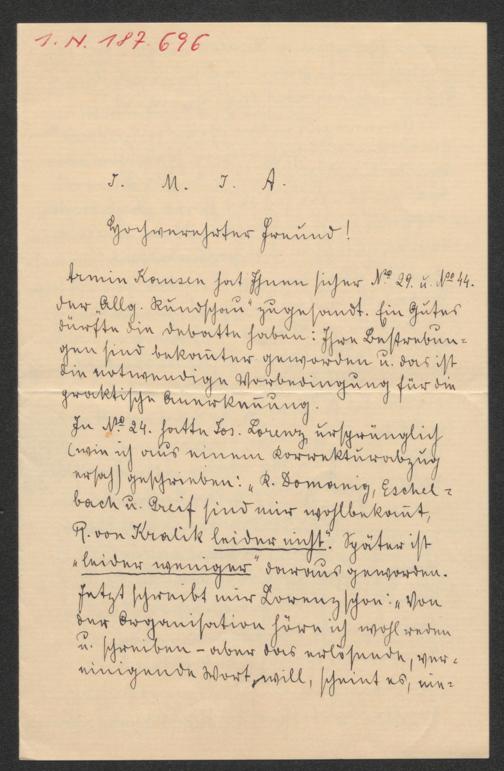 I. N. 187.696
J. M. J. A.
Hochverehrter Freund!
Armin Kausen hat Ihnen sicher No 29. u. No 44.
der „Allg. Rundschau" zugesandt. Ein Gutes
dürfte die Debatte haben: Ihre Bestrebun-
gen sind bekom̅ter geworden u. das ist
die notwendige Vorbedingung für die
praktische Anerken̅ung.
In No 24. hatte Jos. Lorenz ursprünglich
(wie ich aus einem Korrekturabzug
ersah) geschrieben: „K. Domanig, Eschel-
bach u. Greif sind mir wohlbekan̅t,
R. von Kralik leider nicht". Später ist
„leider weniger" daraus geworden.
Jetzt schreibt mir Lorenz schon: „Von
der Organisation höre ich wohl reden
u. schreiben – aber das erlösende, ver-
einigende Wort, will, scheint es, nie-